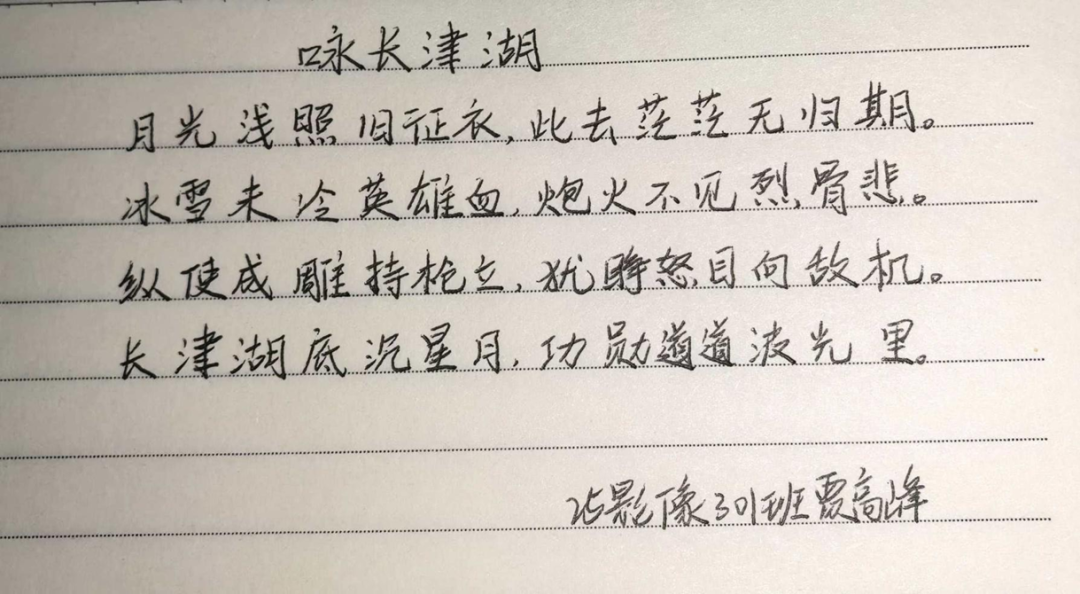 咏长津湖
月光浅照旧征衣,此去茫茫无归期。
冰雪未冷英雄血,炮火不见烈骨悲。
纵使成雕持枪立,犹睁怒目向敌机。
长津湖底沉星月,功勋道道波光里。
25影像301班贾高峰